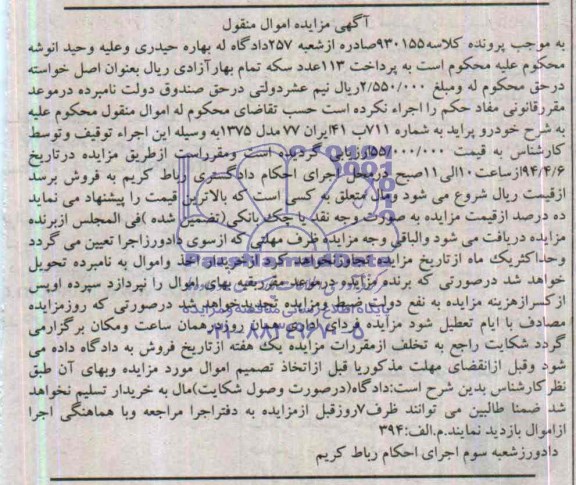 آگهی مزایده اموال منقول
به موجب پرونده کلاسه ۹۳۰۱۵۵صادره ازشعبه ۲۵۷دادگاه له بهاره حیدری وعلیه وحید انوشه
محکوم علیه محکوم است به پرداخت ۱۱۳عدد سکه تمام بهارآزادی ریال بعنوان اصل خواسته
درحق محکوم له ومبلغ ۲/۵۵۰/۰۰۰ریال نیم عشردولتی درحق صندوق دولت نامبرده درموعد
مقررقانونی مفاد حکم را اجراء نکرده است حسب تقاضای محکوم له اموال منقول محکوم علیه
به شرح خودرو پراید به شماره ۷۱۱ب ۴۱ایران ۷۷مدل ۱۳۷۵به وسیله این اجراء توقیف وتوسط
کارشناس به قیمت ۵۵/۰۰۰/۰۰۰ارزیابی گردیده است ومقرراست ازطریق مزایده درتاریخ
۹۴/۴/۶ازساعت۱۰الی۱۱صبح درمحل اجرای احکام دادگستری رباط کریم به فروش برسد
ازقیمت ریال شروع می شود ومال متعلق به کسی است که بالاترین قیمت را پیشنهاد می نماید
ده درصد ازقیمت مزایده به صورت وجه نقد یا چک بانکی(تضمین شده )فی المجلس ازبرنده
مزایده دریافت می شود والباقی وجه مزایده ظرف مهلتی که ازسوی دادورزاجرا تعیین می گردد
وحداکثریک ماه ازتاریخ مزایده تجاوزنخواهد کرد ازخریدار اخذ واموال به نامبرده تحویل
خواهد شد درصورتی که برنده مزایده درموعد مقرربقیه بهای اموال را نپردازد سپرده اوپس
ازکسرازهزینه مزایده به نفع دولت ضبط ومزایده تجدیدخواهد شد درصورتی که روزمزایده
مصادف با ایام تعطیل شود مزایده فردای اداری همان روزدرهمان ساعت ومکان برگزارمی
گردد شکایت راجع به تخلف ازمقررات مزایده یک هفته ازتاریخ فروش به دادگاه داده می
شود وقبل ازانقضای مهلت مذکوریا قبل ازاتخاذ تصمیم اموال مورد مزایده وبهای آن طبق
نظر کارشناس بدین شرح است:دادگاه(درصورت وصول شکایت)مال به خریدار تسلیم نخواهد
شد ضمنا طالبین می توانند ظرف۷روزقبل ازمزایده به دفتراجرا مراجعه وبا هماهنگی اجرا
ازاموال بازدید نمایند.م.الف:۳۹۴
دادورزشعبه سوم اجرای احکام رباط کریم